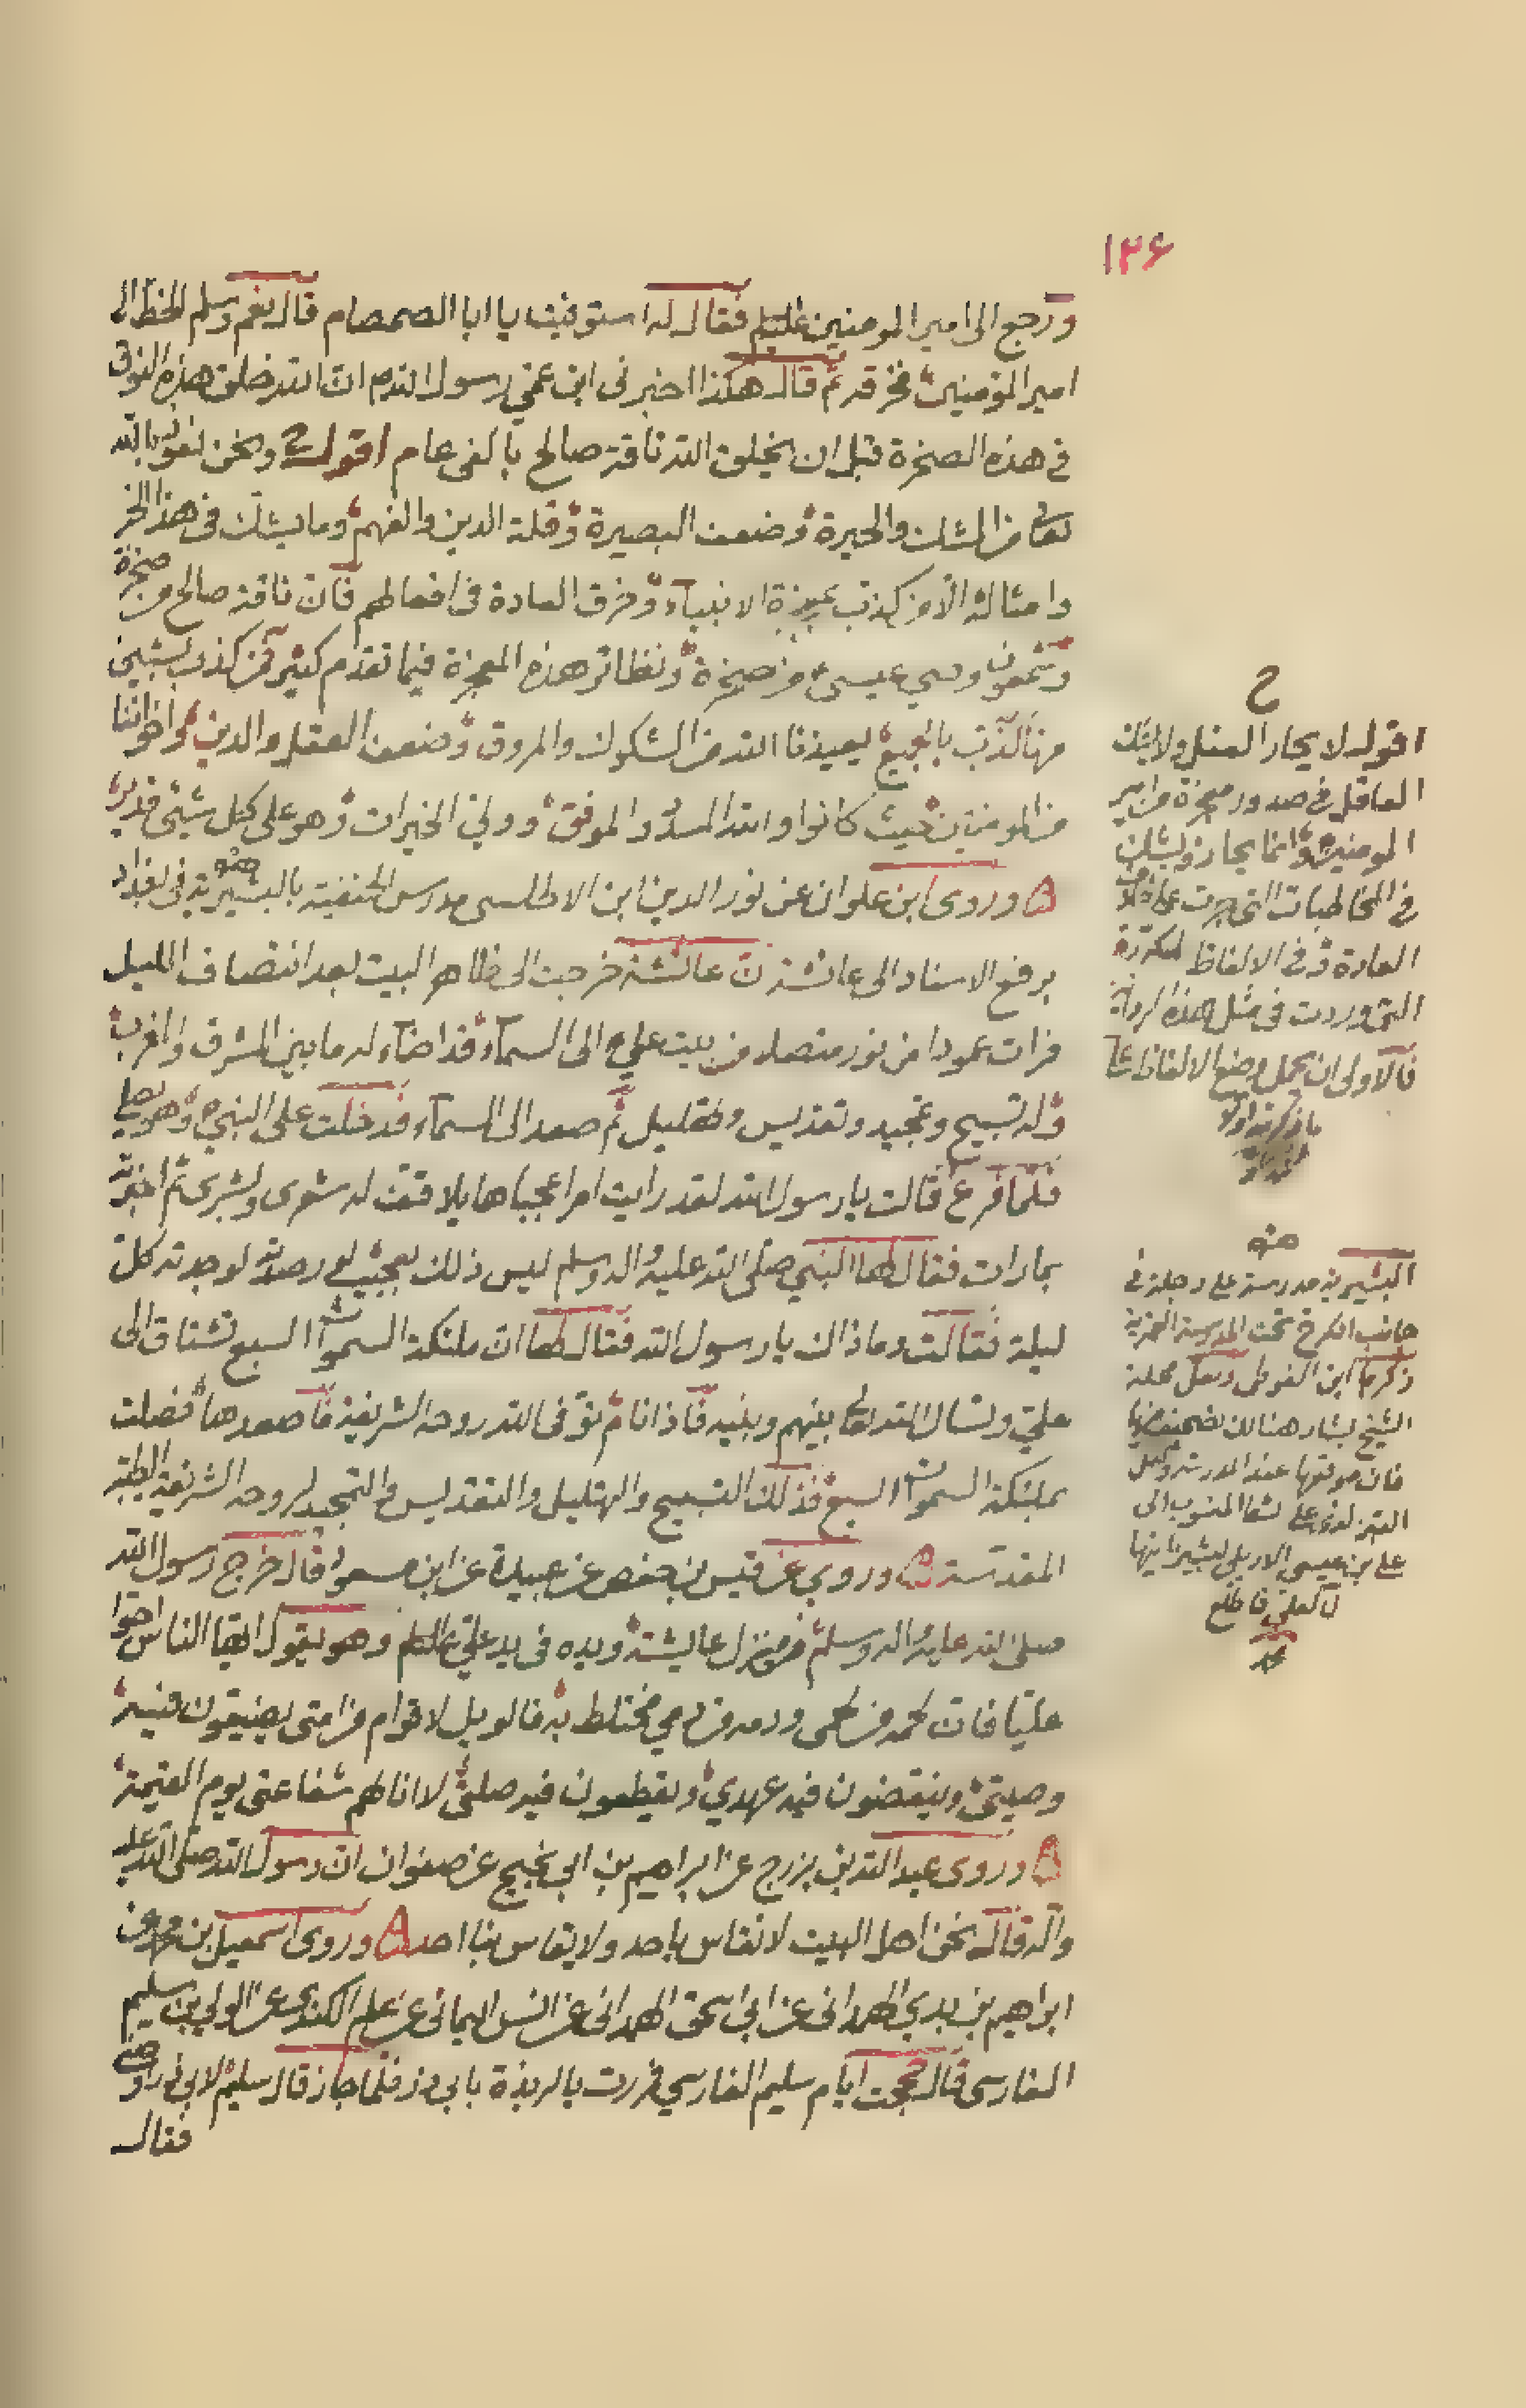 ١٢۶
ورجع الى امير المومنين عليلم فقال له استوفيت يا ابا الصمصام قال نعم وسلم الخط الى
امير المؤمنين فخرقه ثم قال هكذا اخبرنى ابن عمي رسول الله م ان الله خلق هذه النوق
في هذه الصخرة قبل ان يخلق الله ناقة صالح بالفى عام اقول ونحن نعوذ بالله
تعا من الشك والحيرة وضعف البصيرة وقلة الدين والفهم وما يشك فى هذا الخبر
وامثاله الا من كذب بمعجزة الانبياء وخرق العادة فى افعالهم فان ناقة صالح من صخرة
وشمعون وصي عيسى من صخرة ونظائر هذه المعجزة فيما تقدم كثير فمن كذب بشيئ
منها كذب بالجميع يعيذنا الله من الشكوك والمروق وضعف العقل والدين واخواننا
من المومنين حيث كانوا والله المسدد والموفق وولي الخيرات وهو على كل شيئ قدير
وروى ابن علوان عن نور الدين ابن الاطلسى مدرس الحنفية بالبشيرية فى بغداد
برفع الاسناد الى عائشة ان عائشة خرجت الى ظاهر البيت بعد انتصاف الليل
فرات عمودا من نور متصلا من بيت علي الى السماء قد اضاء له ما بين المشرق والمغرب
وله تسبيح وتمجيد وتقديس وتهليل ثم صعد الى السماء فدخلت على النبي وهو يصلي
فلما فرغ قالت يا رسول الله لقد رايت امرا عجيبا هايلا قف له شعرى وبشرى ثم اخبرته
بما رات فقال لها النبي صلى الله عليه واله وسلم ليس ذلك بعجيب لو رصدته لوجدته كل
ليلة فقالت وما ذاك يا رسول الله فقال لها ان ملئكة السموات السبع تشتاق الى
علي وتسال الله لقا بينهم وبينه فاذا نام توفى الله روحه الشريفة فاصعدها فصلت
بملئكة السموات السبع فذلك التسبيح والهتليل والتقديس والتمجيد لروحه الشريفة الطيبة
المقدسة وروي عن قيس بن حفص عن عبيدة عن ابن مسعود قال خرج رسول الله
صلى الله عليه واله وسلم من منزل عايشة ويده فى يد علي وهو يقول ايها الناس احبوا
عليا فان لحمه من لحمى ودمه من دمي مختلط به فالويل لاقوام من امتى يضيعون فيه
وصيتى وينقضون فيه عهدي ويقطعون فيه صلتى لا انالهم شفاعتى يوم القيمة
وروى عبد الله بن بزرج عن ابراهيم بن ابي نجيح عن صفوان ان رسول الله صلى الله عليه
واله قال نحن اهل البيت لا نقاس باحد ولا يقاس بنا احد وروى اسمعيل بن محمد عن
ابراهيم بن بدي الهمدانى عن ابي اسحق الهمدانى عن انس اليمانى عن عليم الكندى عن الولي بن سليم
الفارسى قال حججت ايام سليم الفارسي فررت بالربذة بابى ذر فلما جاز قال سليم لابى ذر اوصني
فقال
ح
اقول لا يحار العقل ولا يشك
العاقل فى صدور معجزة من امير
المومنين وانما يحار ويشك
فى المخاطبات التى جرت على خلاف
العادة وفى الالفاظ المكررة
التى وردت فى مثل هذه الرواية
فالاولى ان يحمل وضع الالفاظ على
ما ذكرته اولا
منه
البشيرية مدرسة على دجلة فى
جانب الكرخ تحت المدرسة
ذكرها ابن الفوطى ولعل محلة
الشيخ بشار هنالك
فان موقعها عند المدرسة
القبر على المنسوب الى
على بن عيسى الاربلى
فاطلع